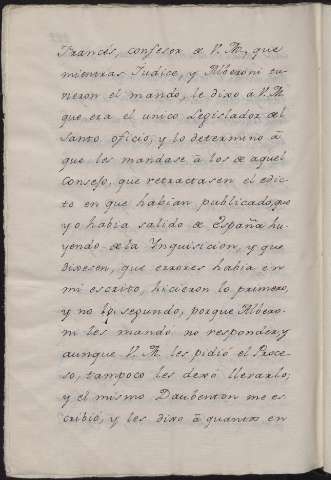 Francés, confesor de V. M., que
mientras Judice, y Alberoni tu-
vieron el mando, le dixo à V. M.
que era el unico Legislador del
santo oficio, y lo determinò à
que les mandase à los de aquel
Consejo, que retractasen el edic-
to en que habian publicado, que
yo habia salido de España hu-
yendo de la Ynquisicion, y que
dixesen, que errores habia en
mi escrito, hicieron lo primero,
y no lo segundo, porque Albero-
ni les mandó no responder, y
aunque V. M. les pidió el Proce-
so, tampoco les dexó llevarlo;
y el mismo Daubenton me es-
cribió, y les dixo à quantos en